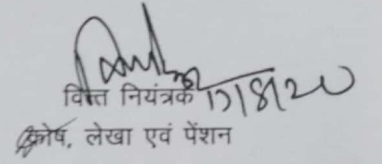 वित्त नियंत्रक 17/8/20
कोष, लेखा एवं पेंशन